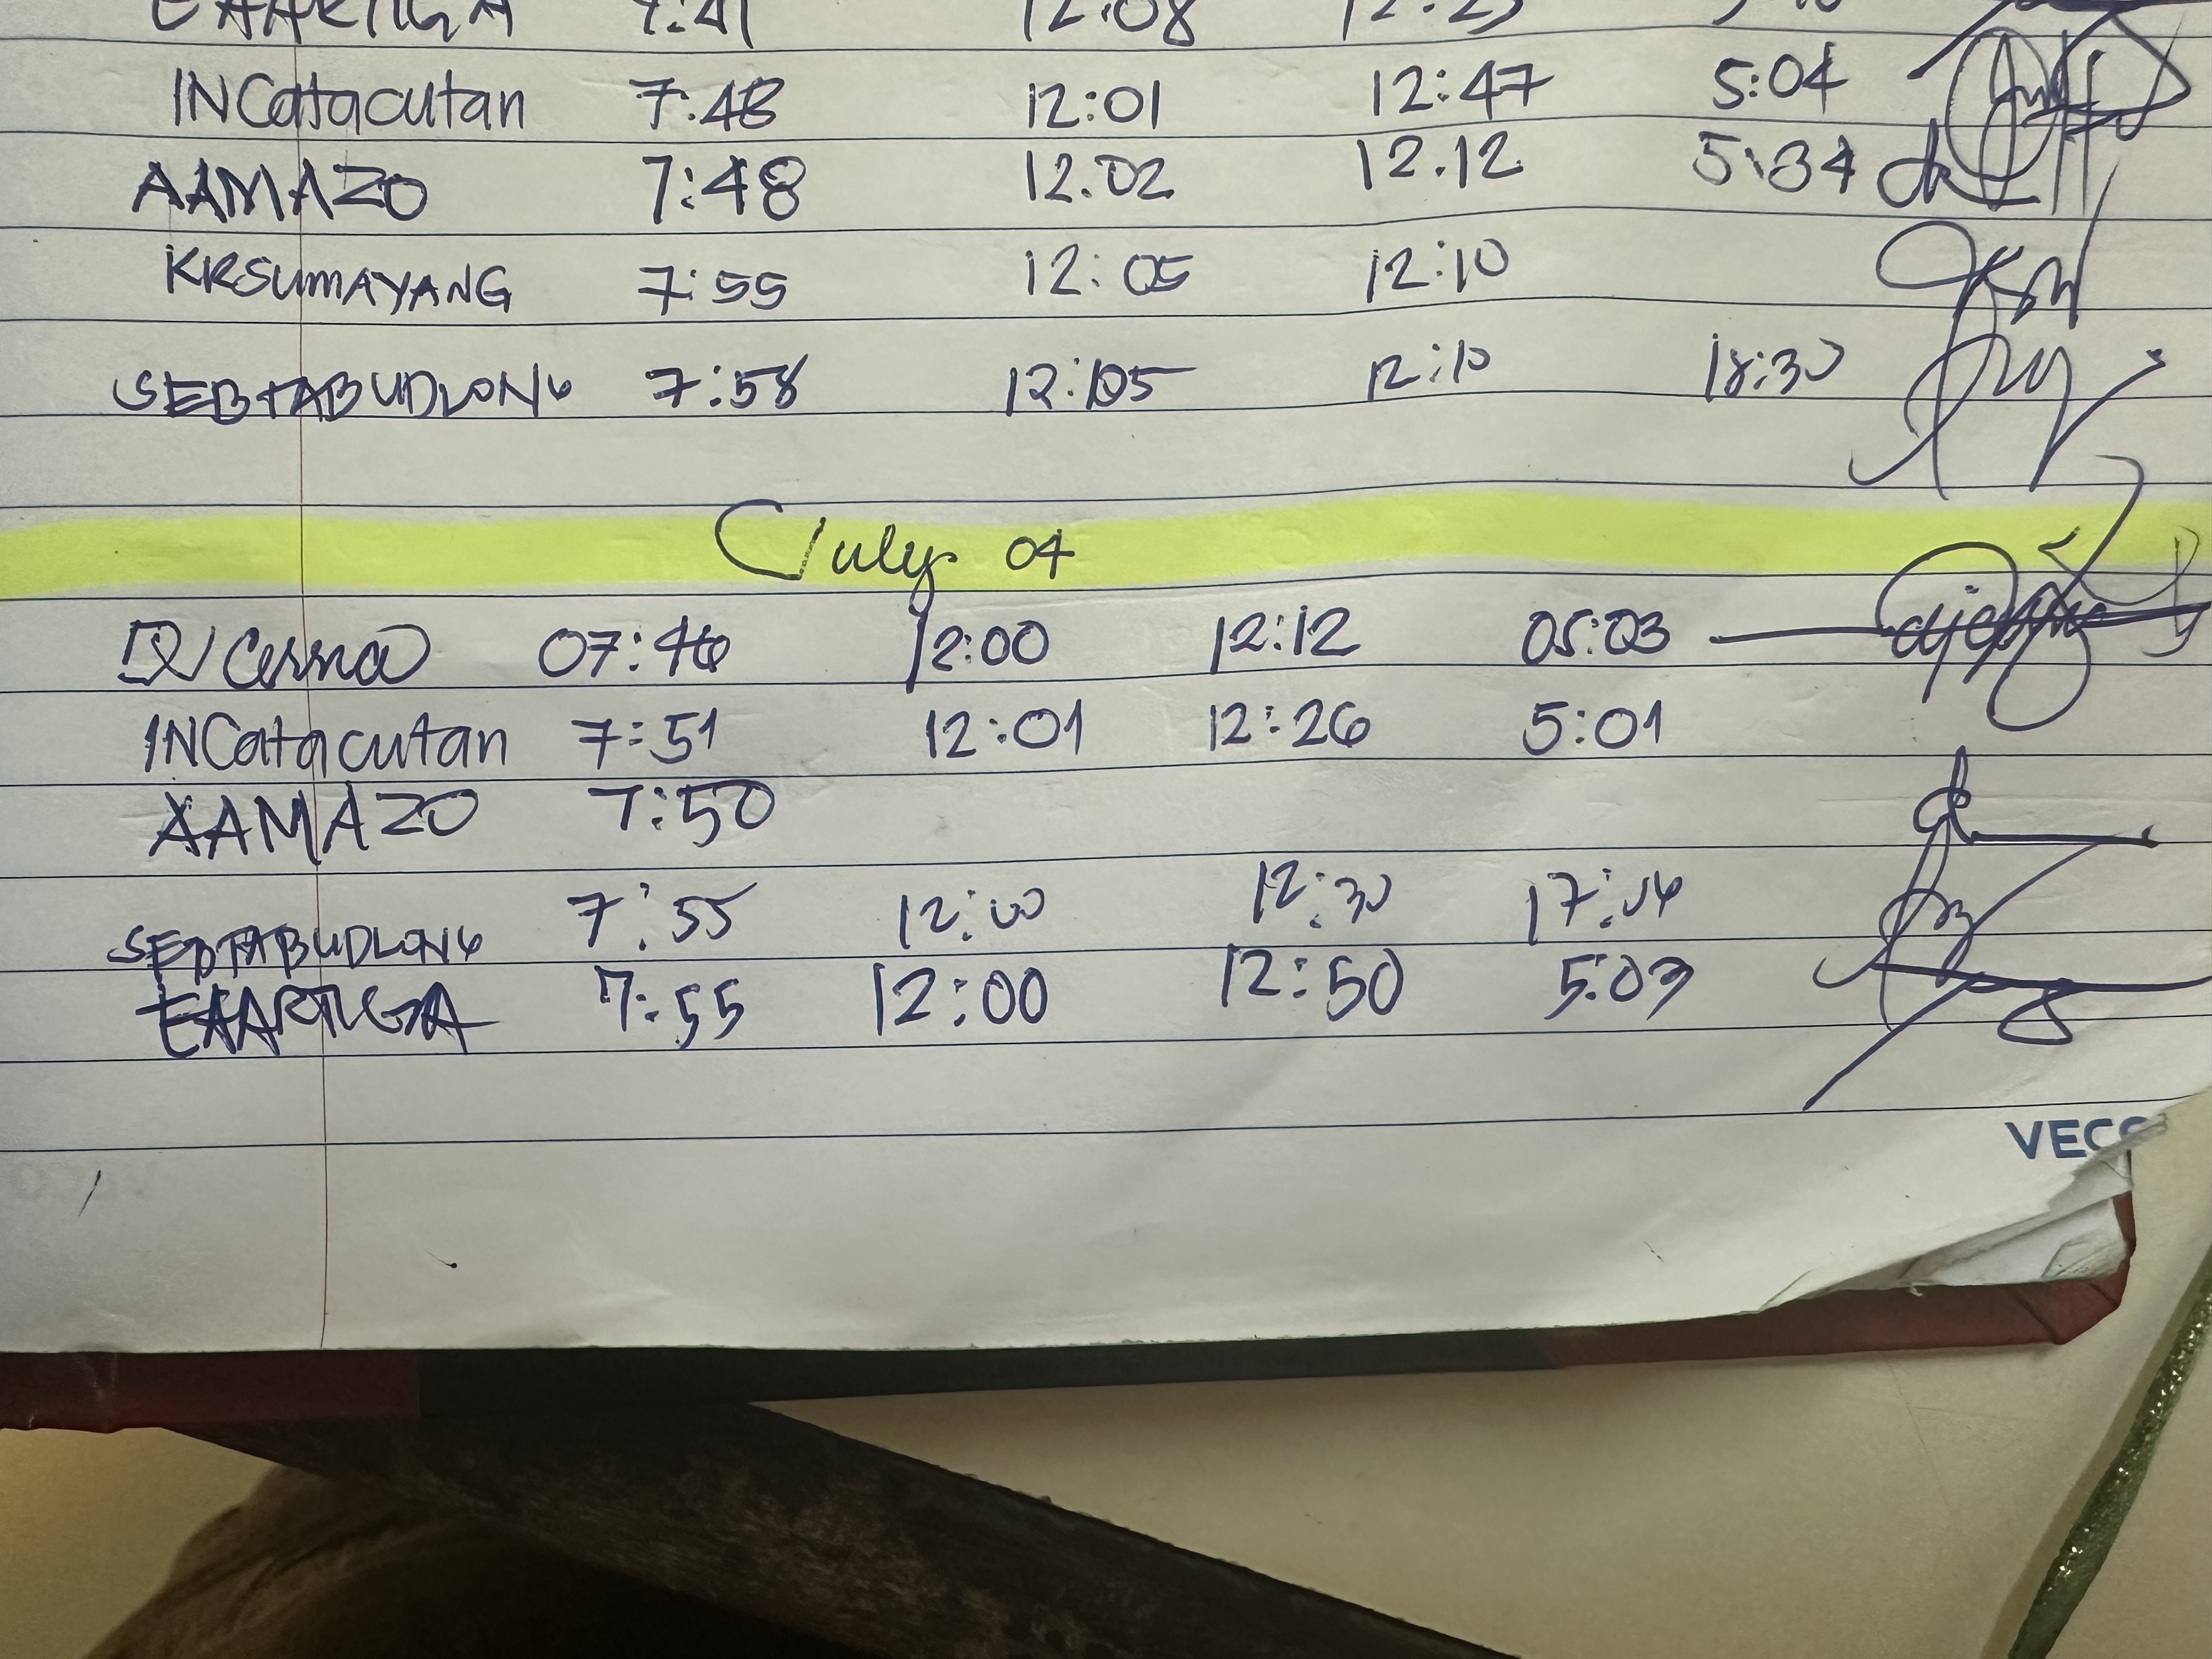 EAARTIGA 7:41 12:08
INCatacutan 7:48 12:01 12:47 5:04
AAMAZO 7:48 12.02 12.12 5:34
KRSUMAYANG 7:55 12:05 12:10
SEBTABUDLONG 7:58 12:05 12:10 18:30
July 04
Cerna 07:46 12:00 12:12 05:03
INCatacutan 7:51 12:01 12:26 5:01
AAMAZO 7:50
SEBTABUDLONG 7:55 12:00 12:30 17:04
EAARTIGA 7:55 12:00 12:50 5:03